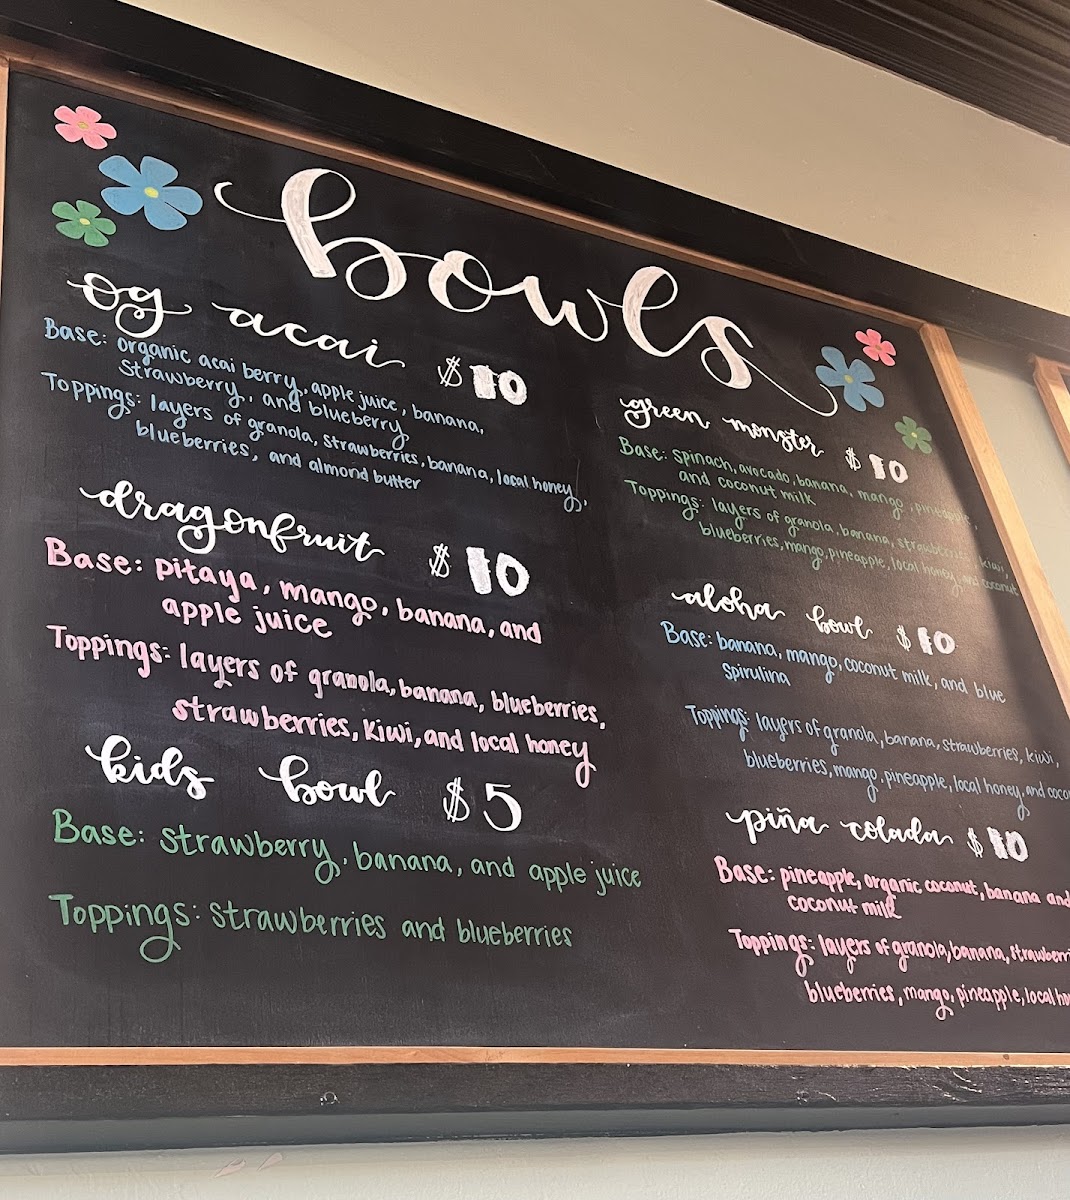 bowls
og acai $10
Base: organic acai berry, apple juice, banana,
strawberry, and blueberry
Toppings: layers of granola, strawberries, banana, local honey,
blueberries, and almond butter
dragonfruit $10
Base: pitaya, mango, banana, and
apple juice
Toppings: layers of granola, banana, blueberries,
strawberries, kiwi, and local honey
kids bowl $5
Base: strawberry, banana, and apple juice
Toppings: strawberries and blueberries
green monster $10
Base: spinach, avocado, banana, mango, pineapple,
and coconut milk
Toppings: layers of granola, banana, strawberries, kiwi,
blueberries, mango, pineapple, local honey, and coconut
aloha bowl $10
Base: banana, mango, coconut milk, and blue
spirulina
Toppings: layers of granola, banana, strawberries, kiwi,
blueberries, mango, pineapple, local honey, and coco
piña colada $10
Base: pineapple, organic coconut, banana and
coconut milk
Toppings: layers of granola, banana, strawberri
blueberries, mango, pineapple, local ho